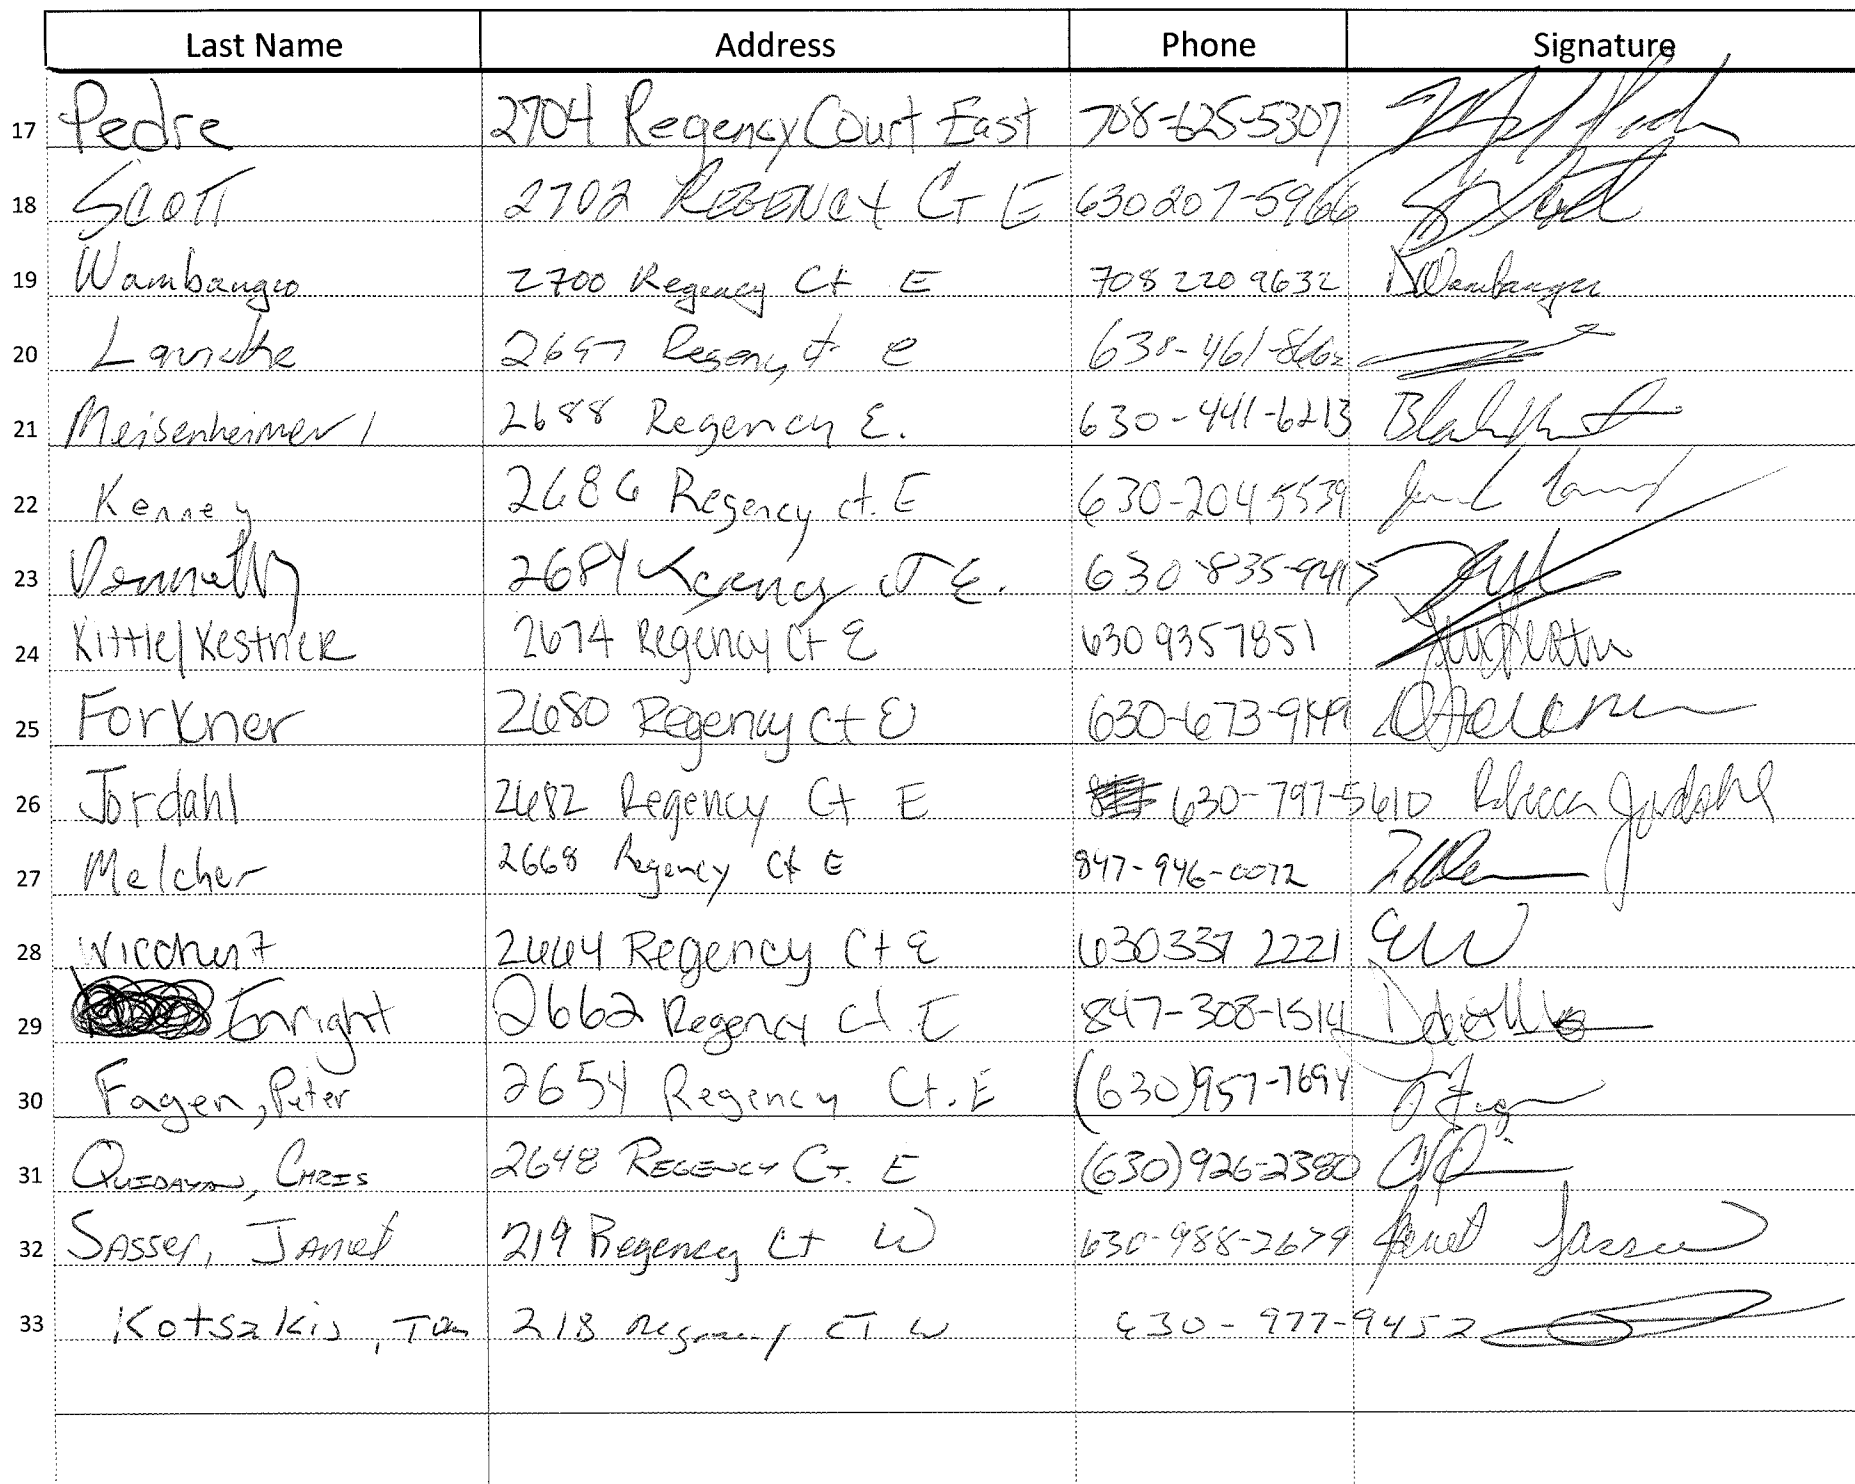 Last Name Address Phone Signature
17 Pedre 2704 Regency Court East 708-625-5307
18 SCOTT 2702 REGENCY CT E 630 207-5966
19 Wambangco 2700 Regency Ct E 708 220 9632 DWambangco
20 2697 Regency ct e 630-461-8662
21 Meisenheimer 2688 Regency E. 630-441-6213
22 Kenney 2686 Regency ct. E 630-204 5539
23 2684 Regency CT E. 630-835-9417
24 Kittle/Kestner 2674 Regency Ct E 630 935 7851
25 Forkner 2680 Regency Ct E 630-673-9449
26 Jordahl 2682 Regency Ct E 630-797-5610 Rebecca Jordahl
27 Melcher 2668 Regency Ct E 847-946-0072
28 2664 Regency Ct E 630 337 2221 EW
29 Enright 2662 Regency Ct. E 847-308-1514
30 Fagen, Peter 2654 Regency Ct. E (630)957-7694 P Fagen
31 QUIDAYAN, CHRIS 2648 REGENCY CT. E (630)926-2380
32 SASSer, JANet 219 Regency Ct W 630-988-2679 Janet Sasser
33 Kotsakis, Tom 218 Regency CT W 630-977-9452